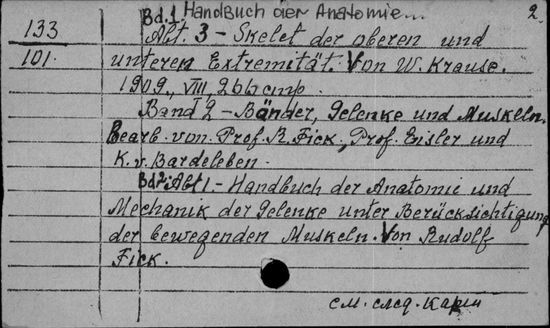 Bd.1 Handbuch der Anatomie... 2.
133 Abt. 3 - Skelet der oberen und
101. unteren Extremität. Von W. Krause.
1909., VIII, 266 стр.
Band 2 - Bänder, Gelenke und Muskeln.
Bearb. von Prof. R. Fick, Prof. Eisler und
K. v. Bardeleben.
Bd 2: Abt 1. - Handbuch der Anatomie und
Mechanik der Gelenke unter Berücksichtigung
der bewegenden Muskeln. Von Rudolf
Fick.
см. след. карт